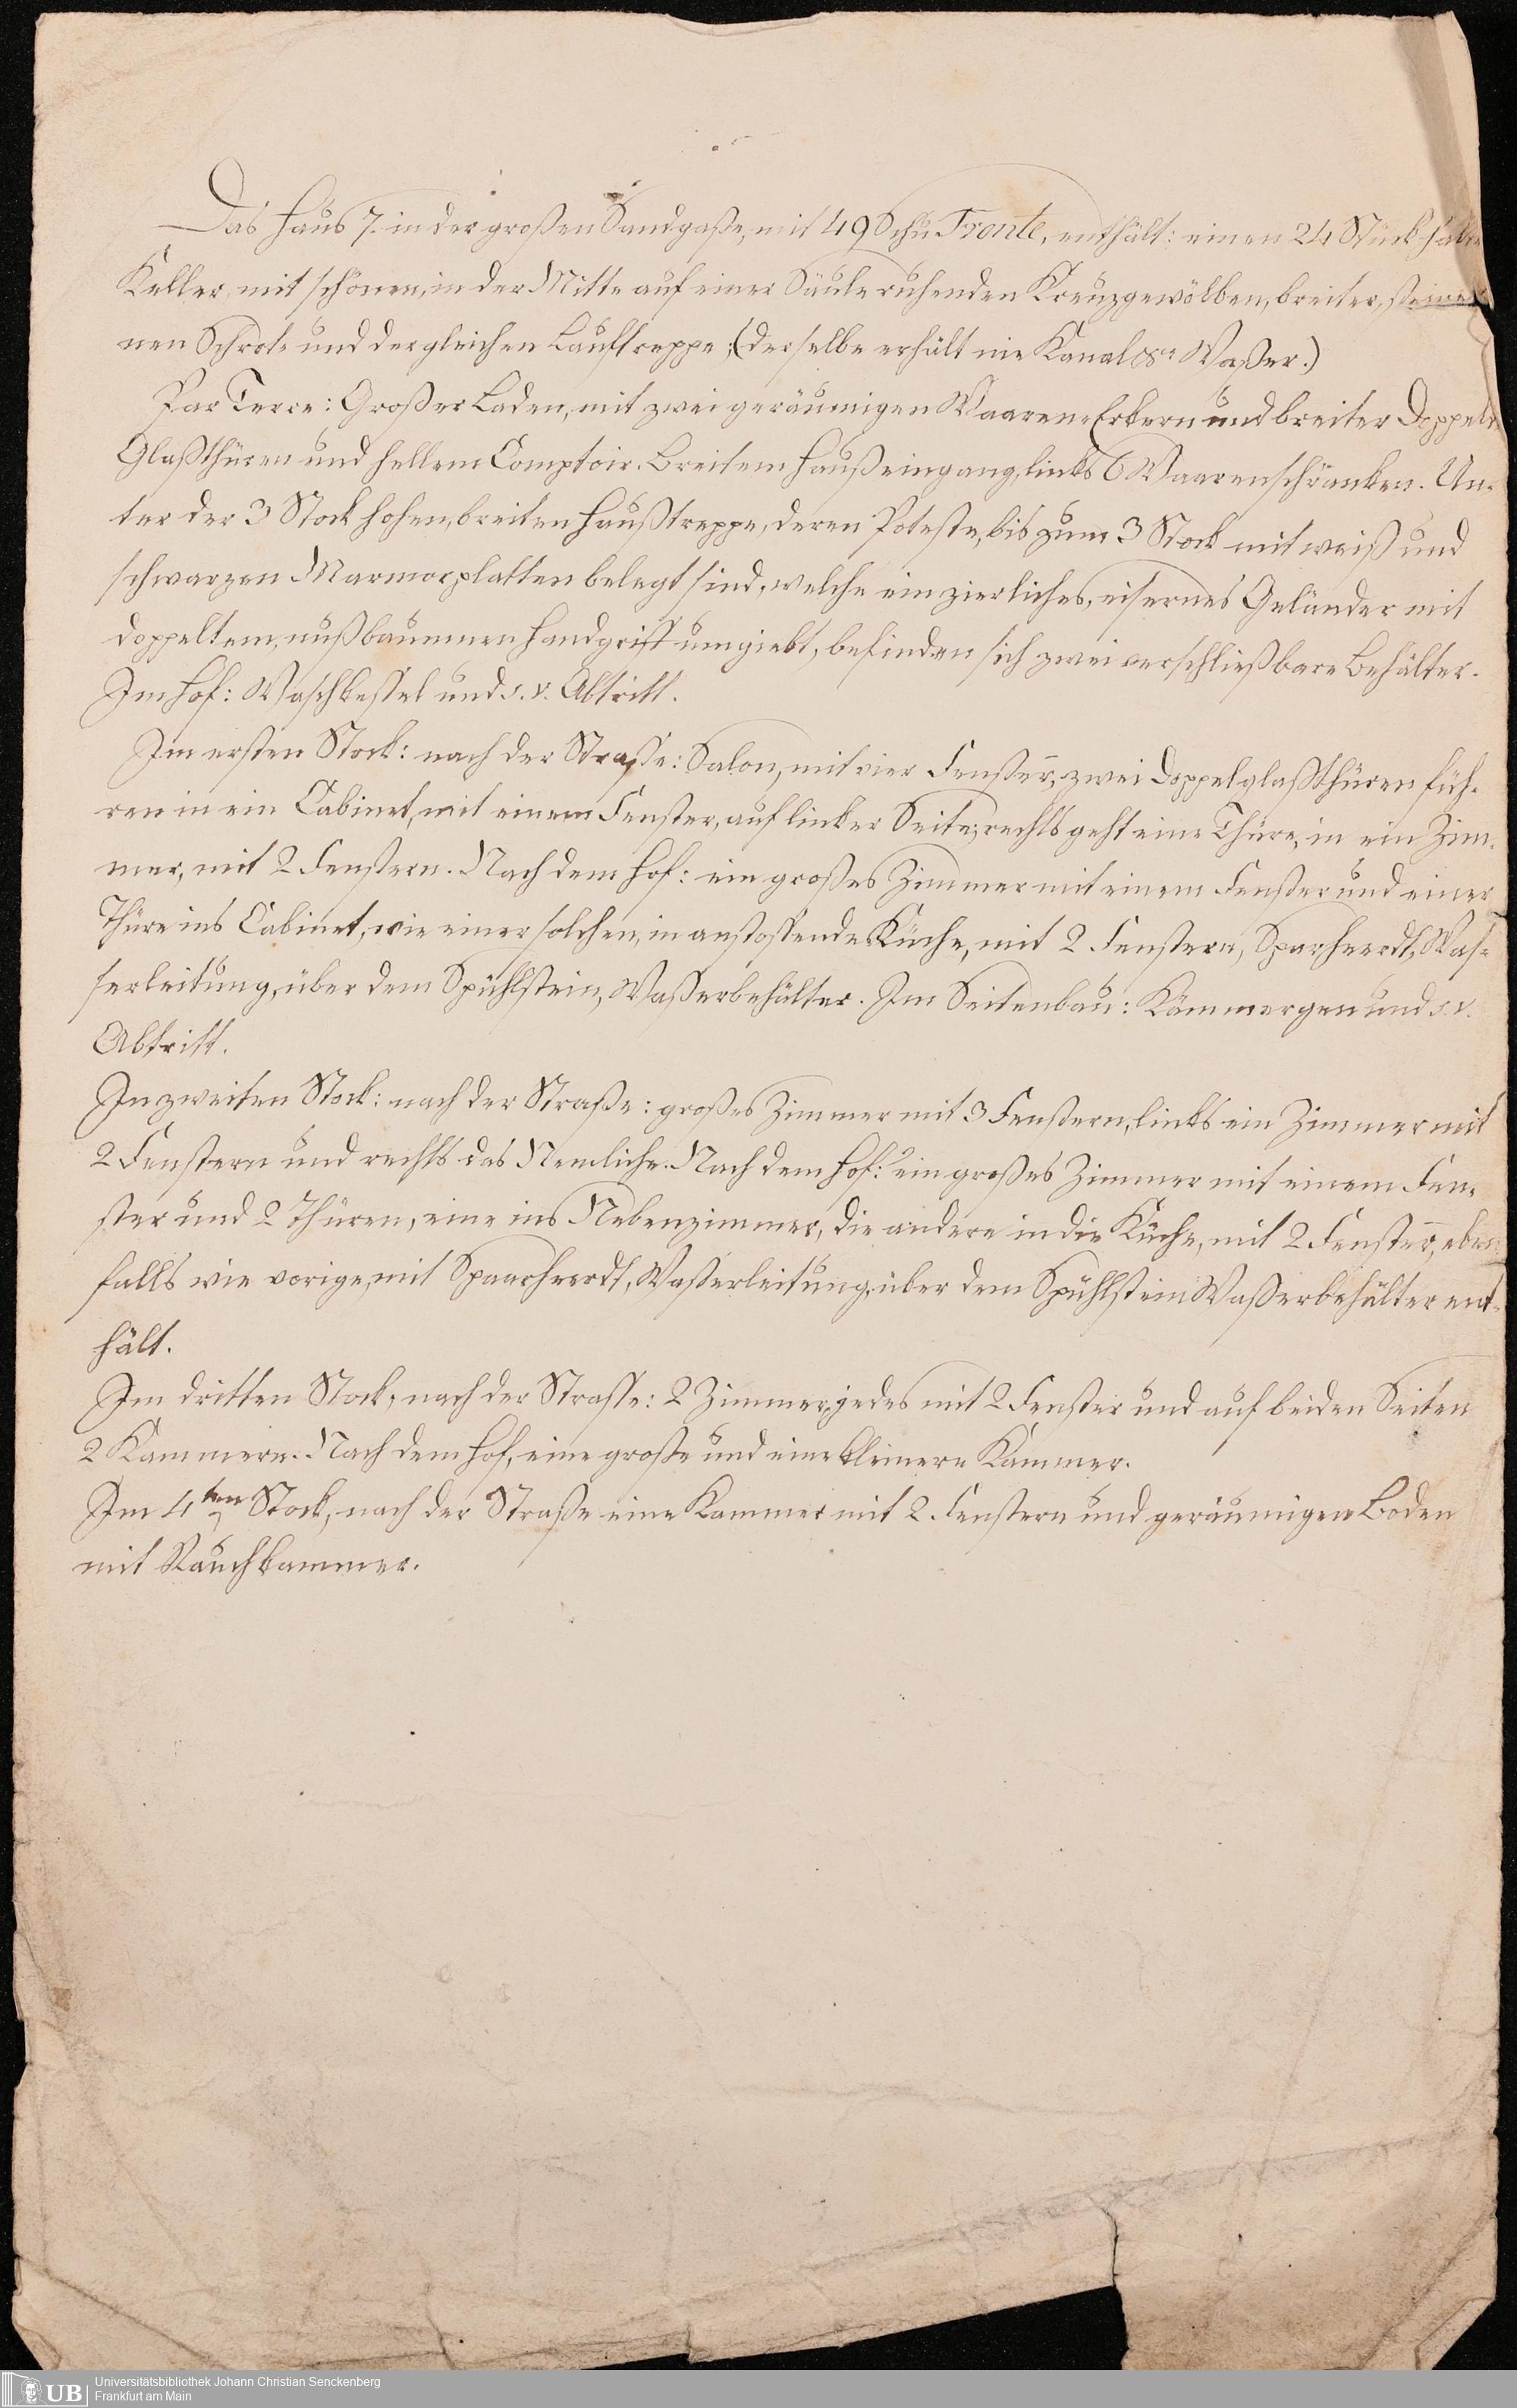 Das Haus 7. in der großen Sandgaße, mit 49 Schu Fronte, enthält: einen 24 Stück halten
Keller, mit schönen, in der Mitte auf einer Säule ruhenden Kreuzgewölben, breiter, steiner-
nen Schrot- und dergleichen Lauftreppe; (derselbe erhält nie Kanal Waßer.)
Par Terre: Großer Laden, mit zwei geräumigen Waaren-Erkern und breiter Doppel-
Glaßthüren und hellem Comptoir. Breitem Haußeingang, links 6 Waarenschränken. Un-
ter der 3 Stock hohen, breiten Haußtreppe, deren Poteste, bis zum 3 Stock mit weiß und
schwarzen Marmorplatten belegt sind, welche ein zierliches, eisernes Geländer mit
doppeltem, nußbaumnen Handgriff umgiebt, befinden sich zwei verschließbare Behälter.
Im Hof: Waschkessel und s. v. Abtritt.
Im ersten Stock: nach der Strasse: Salon, mit vier Fenstern̄, zwei Doppelglaßthüren füh-
ren in ein Cabinet, mit einem Fenster, auf linker Seite; rechts geht eine Thüre, in ein Zim-
mer, mit 2 Fenstern. Nach dem Hof: ein großes Zimmer mit einem Fenster und einer
Thüre ins Cabinet, wie einer solchen, in anstossende Küche, mit 2 Fenstern, Sparheerdt, Was-
serleitung, über dem Spühlstein, Waßerbehälter. Im Seitenbau: Kämmergen und s. v.
Abtritt.
In zweiten Stock: nach der Straße: großes Zimmer mit 3 Fenstern, links ein Zimmer mit
2 Fenstern und rechts das Nemliche. Nach dem Hof: ein großes Zimmer mit einem Fen-
ster und 2 Thüren, eine ins Nebenzimmer, die andere in die Küche, mit 2 Fenster̄n, eben-
falls wie vorige, mit Spaarheerdt, Waßerleitung, über dem Spühlstein Waßerbehälter ent-
hält.
Im dritten Stock, nach der Strasse: 2 Zimmer, jedes mit 2 Fenster und auf beiden Seiten
2 Kammern. Nach dem Hof, eine große und eine kleinere Kammer.
Im 4ten Stock, nach der Straße eine Kammer mit 2. Fenstern und geräumigen Boden
mit Rauchkammer.
UB
Universitätsbibliothek Johann Christian Senckenberg
Frankfurt am Main